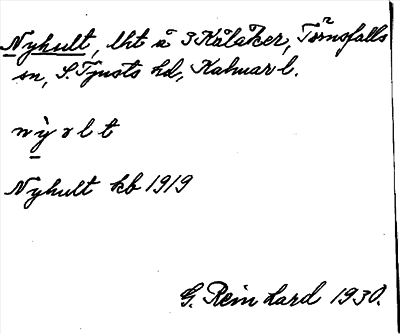 Nyhult, lht å 3 Kålåker, Törnsfalls
sn, S. Tjusts hd, Kalmar l.
nỳolt
Nyhult kb 1919
G. Reinhard 1930.